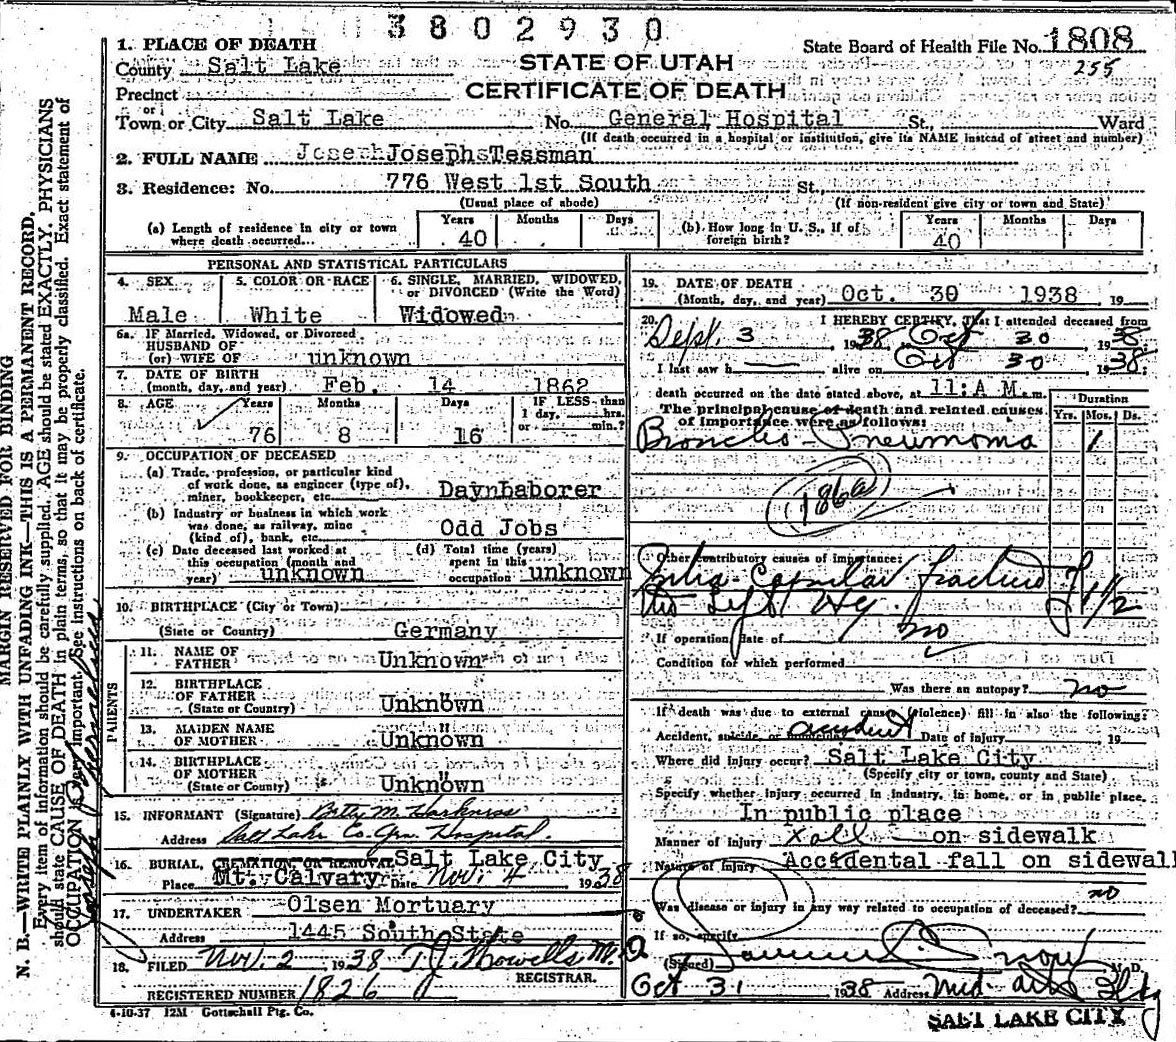 3802930
State Board of Health File No. 1808
255
STATE OF UTAH
CERTIFICATE OF DEATH
1. PLACE OF DEATH
County Salt Lake
Precinct
or
Town or City Salt Lake No. General Hospital St., Ward
(If death occurred in a hospital or institution, give its NAME instead of street and number)
2. FULL NAME Joseph Tessman
3. Residence: No. 776 West 1st South St.,
(Usual place of abode) (If non-resident give city or town and State)
(a) Length of residence in city or town where death occurred... Years 40 Months Days
(b) How long in U. S., if of foreign birth? Years 40 Months Days
PERSONAL AND STATISTICAL PARTICULARS
4. SEX Male
5. COLOR OR RACE White
6. SINGLE, MARRIED, WIDOWED, or DIVORCED (Write the Word) Widowed
6a. IF Married, Widowed, or Divorced
HUSBAND OF
(or) WIFE OF unknown
7. DATE OF BIRTH
(month, day, and year) Feb. 14 1862
8. AGE Years 76 Months 8 Days 16 IF LESS than 1 day, hrs. or min.?
9. OCCUPATION OF DECEASED
(a) Trade, profession, or particular kind
of work done, as engineer (type of),
miner, bookkeeper, etc. Day Laborer
(b) Industry or business in which work
was done, as railway, mine
(kind of), bank, etc. Odd Jobs
(c) Date deceased last worked at
this occupation (month and
year) unknown
(d) Total time (years)
spent in this
occupation unknown
10. BIRTHPLACE (City or Town)
(State or Country) Germany
PARENTS
11. NAME OF
FATHER Unknown
12. BIRTHPLACE
OF FATHER
(State or Country) Unknown "
13. MAIDEN NAME
OF MOTHER Unknown "
14. BIRTHPLACE
OF MOTHER
(State or Country) Unknown "
15. INFORMANT (Signature) Betty M. Harkness
Address Salt Lake Co. Gen. Hospital.
16. BURIAL, CREMATION, OR REMOVAL Salt Lake City
Place Mt. Calvary Date Nov. 4 1938
17. UNDERTAKER Olsen Mortuary
Address 1445 South State
18. FILED Nov. 2 1938 T.J. Howells M.D.
REGISTRAR.
REGISTERED NUMBER 1826
4-10-37 12M Gottschall Ptg. Co.
19. DATE OF DEATH
(Month, day, and year) Oct. 30 1938, 19
20. I HEREBY CERTIFY, That I attended deceased from
Sept. 3 1938 Oct 30 1938
I last saw h alive on Oct 30 1938
death occurred on the date stated above, at 11: A M. m.
The principal cause of death and related causes
of importance were as follows:
Duration
Yrs. Mos. Ds.
Broncho-Pneumonia 1
186a
Other contributory causes of importance:
Intra-Capsular fracture of
the Left Hip. 1 1/2
If operation, date of no
Condition for which performed
Was there an autopsy? no
If death was due to external cause (violence) fill in also the following:
Accident, suicide, or accident Date of injury 19
Where did injury occur? Salt Lake City
(Specify city or town, county and State)
Specify whether injury occurred in industry, in home, or in public place.
In public place
Manner of injury Fall on sidewalk
Nature of injury Accidental fall on sidewalk
Was disease or injury in any way related to occupation of deceased? no
If so, specify
(Signed) M. D.
Oct 31 1938 Address Med. Arts Bldg
SALT LAKE CITY
MARGIN RESERVED FOR BINDING
N. B.—WRITE PLAINLY WITH UNFADING INK—THIS IS A PERMANENT RECORD.
Every item of information should be carefully supplied. AGE should be stated EXACTLY. PHYSICIANS
should state CAUSE OF DEATH in plain terms, so that it may be properly classified. Exact statement of
OCCUPATION is very important. See instructions on back of certificate.